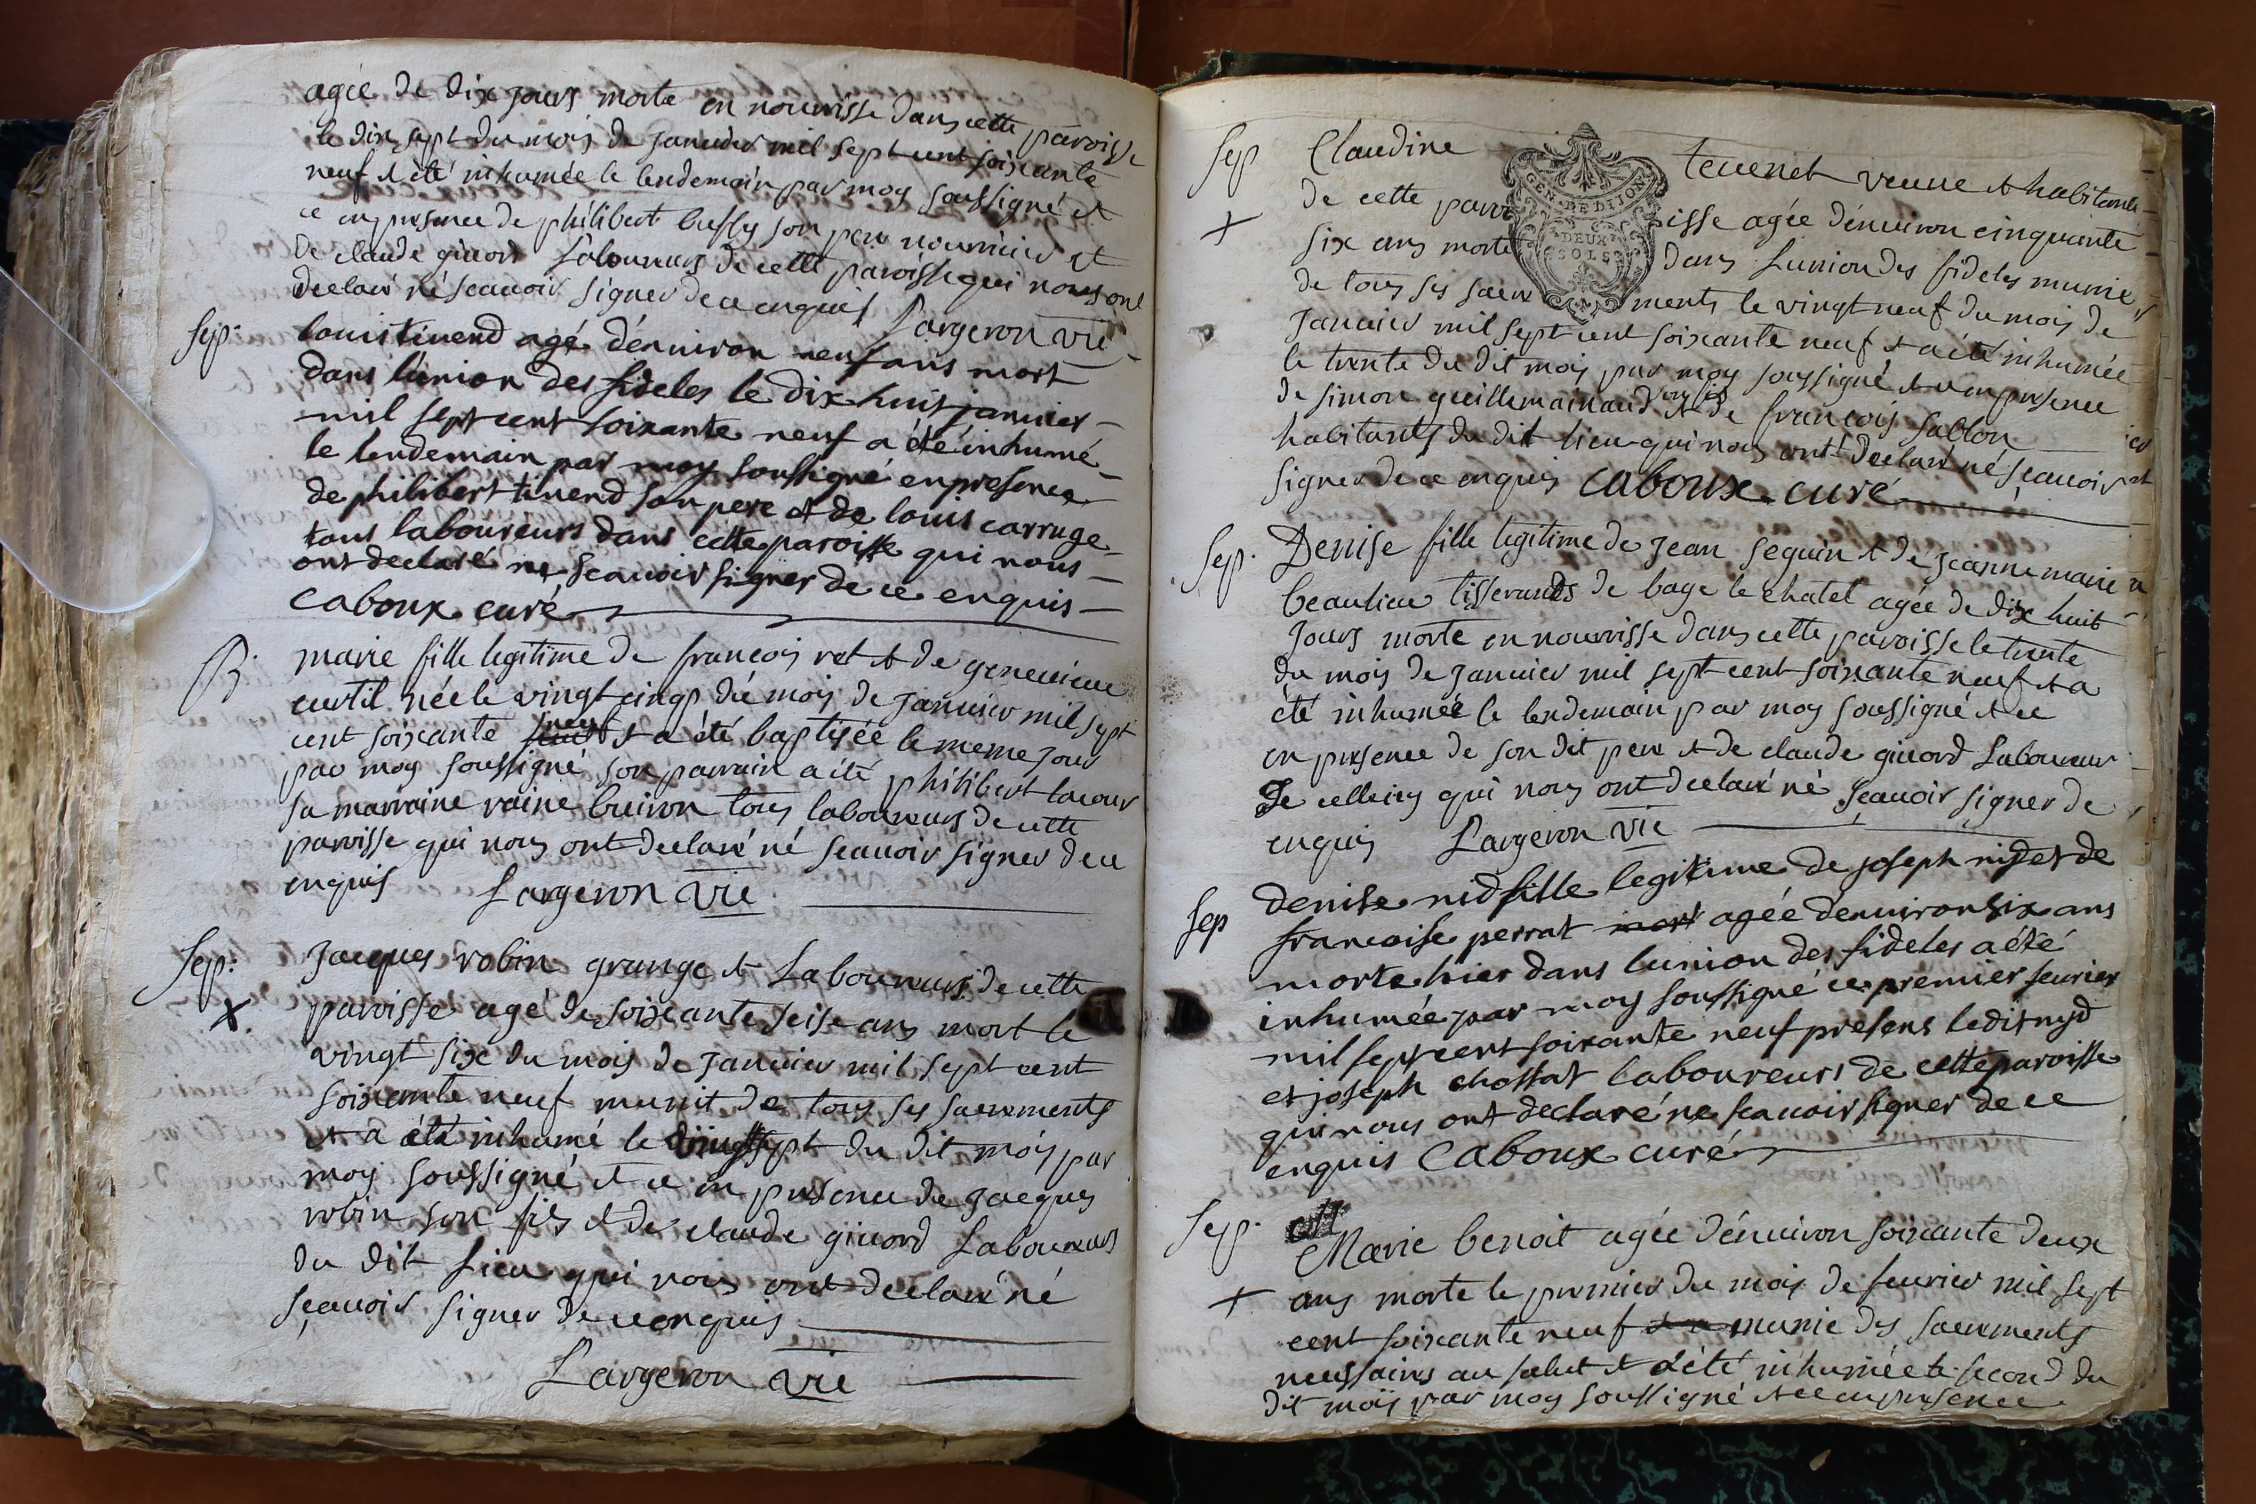 agée de dix jours morte en nourrisse dans cette paroisse
le dix sept du mois de janvier mil sept cent soixante
neuf et été inhumée le lendemain par moy soussigné et
ce en presence de philibert bussy son pere nourricier et
De claude givord Laboureurs de cette paroisse qui nous ont
declaré né scauoir signer de ce enquis Largeron vic
Sep. louis tiuend agé d'enuiron neuf ans mort
dans l'union des fideles le dix huit januier
mil sept cent soixante neuf a été inhumé
le lendemain par moy soussigné en presence
de philibert tiuend son pere et de louis carruge
tous laboureurs dans cette paroisse qui nous
ont declaré ne scauoir signer de ce enquis
caboux curé
B. marie fille legitime de francois rat et de geneuieue
curtil née le vingt cinq du mois de januier mil sept
cent soixante neuf et a été baptisée le meme jour
par moy soussigné son parrain a été philibert lacour
sa marraine raine buiron tous laboureurs de cette
paroisse qui nous ont declaré né scauoir signer de ce
enquis Largeron vic
Sep. Jacques robin granger et Laboureurs de cette
X paroisse agé de soixante seise ans mort le
vingt six du mois de januier mil sept cent
soixante neuf munit de tous ses sacrements
et a été inhumé le vingt sept du dit mois par
moy soussigné et ce en presence de jacques
robin son fils et de claude giuord Laboureurs
du dit Lieu qui nous ont declaré né
scauoir signer de ce enquis
Largeron vic
Sep Claudine teuenet veuue et habitante
X de cette paroisse agée d'enuiron cinquante
GEN. DE DIJON
DEUX
SOLS
six ans morte dans L'union des fideles munie
de tous ses sacrements le vingt neuf du mois de
januier mil sept cent soixante neuf et a été inhumée
le trente du dit mois par moy soussigné et ce en presence
de simon guillemainaud son fils et de francois sablon
habitants du dit Lieu qui nous ont declaré né scauoir
signer de ce enquis caboux curé
Sep. Denise fille legitime de jean seguin et de jeanne marie
beaulieu tisserands de bage le chatel agée de dix huit
jours morte en nourrisse dans cette paroisse le trente
du mois de januier mil sept cent soixante neuf et a
été inhumée le lendemain par moy soussigné et ce
en presence de son dit pere et de claude giuord Laboureur
de celleicy qui nous ont declaré né scauoir signer de
enquis Largeron vic
Sep denise nid fille legitime de joseph nid et de
francoise perrat agée denuiron six ans
morte hier dans lunion des fideles a été
inhumée par moy soussigné ce premier feurier
mil sept cent soixante neuf presens ledit nyd
et joseph chossat laboureurs de cette paroisse
qui nous ont declaré ne scauoir signer de ce
enquis caboux curé
Sep. Marie benoit agée d'enuiron soixante deux
X ans morte le premier du mois de feurier mil sept
cent soixante neuf munie des sacrements
necessaires au salut et a été inhumée le second du
dit mois par moy soussigné et ce en presence